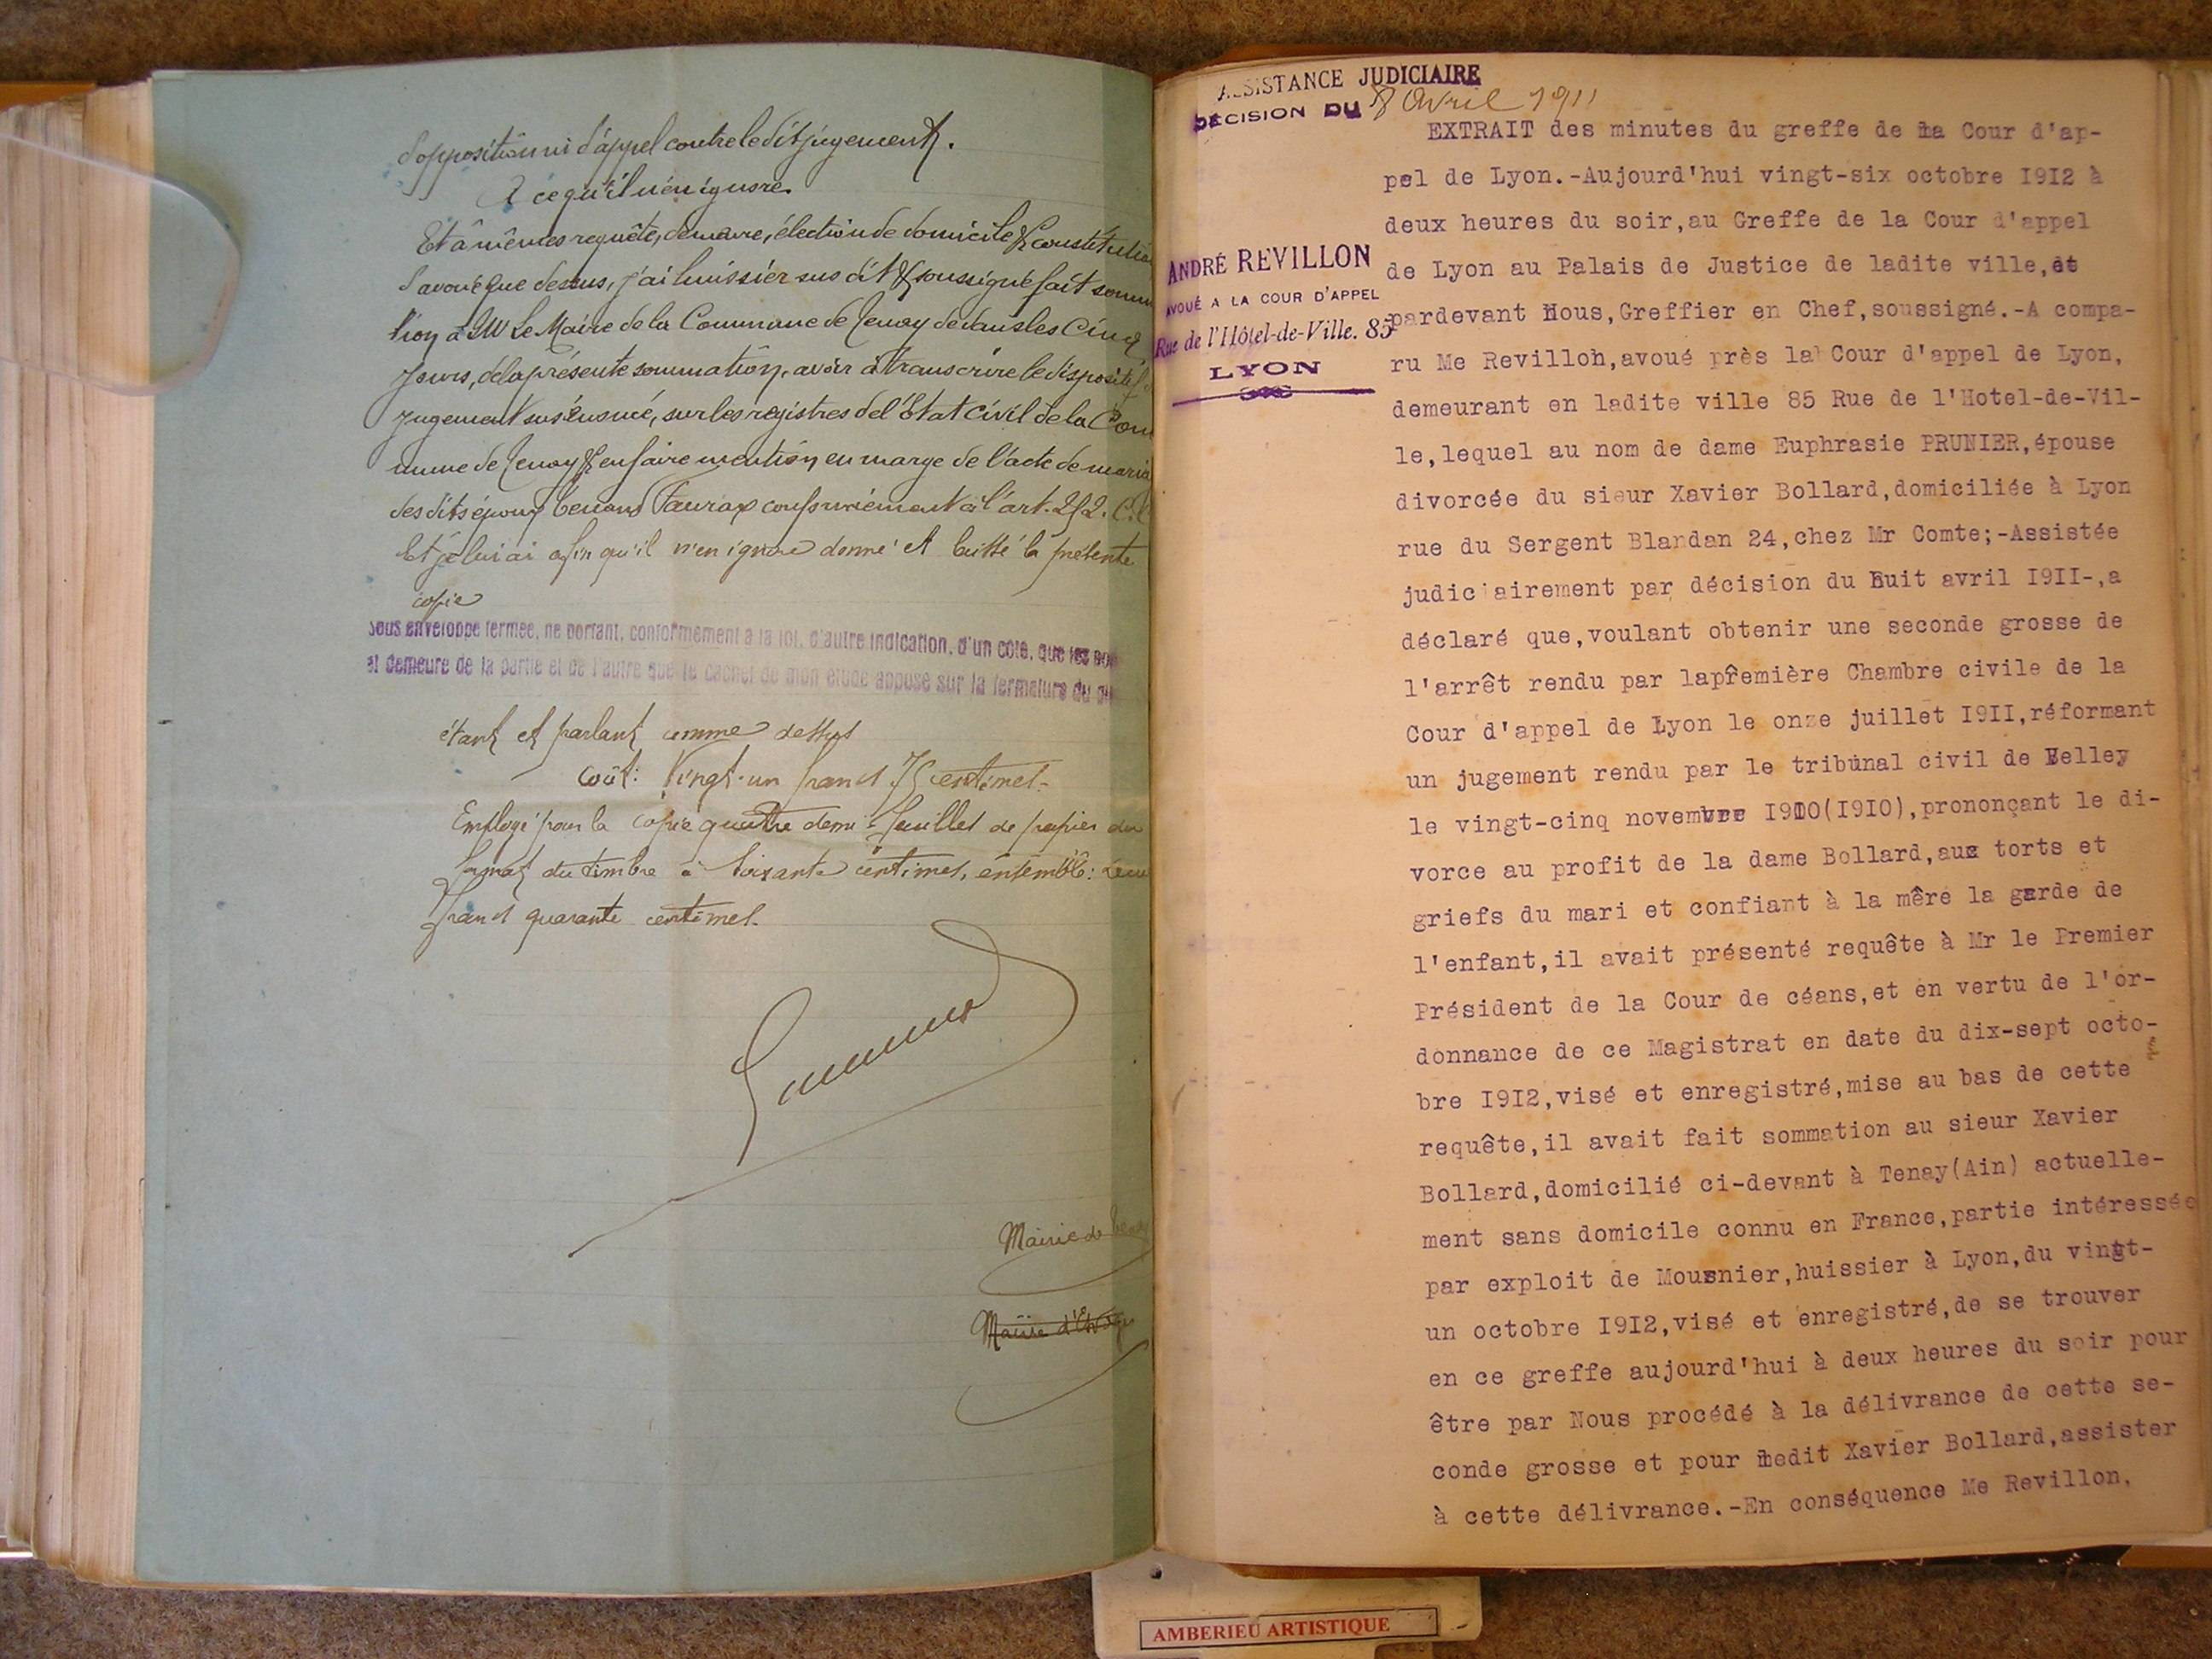 d'opposition ni d'appel contre le dit jugement.
A ce qu'il n'en ignore
Et à mêmes requête, demeure, élection de domicile & constitution
d'avoué que dessus, j'ai huissier sus dit & soussigné fait somma
tion à Mr Le Maire de la Commune de Tenay de dans les Cinq
Jours, de la présente sommation, avoir à transcrire le dispositif
jugement sus énoncé, sur les registres de l'Etat Civil de la Com
mune de Tenay & en faire mention en marge de l'acte de maria
des dits époux conformément à l'art. 252. C.C
Et je lui ai afin qu'il n'en ignore donné et laissé la présente
copie
sous enveloppe fermée, ne portant, conformément à la loi, d'autre indication, d'un coté, que les
et demeure de la partie et de l'autre que le cachet de mon étude apposé sur la fermeture du
étant et parlant comme dessus
Coût: Vingt-un francs 75 centimes.
Employé pour la copie quatre demi-feuilles de papier du
format du timbre à soixante centimes, ensemble: deux
francs quarante centimes.
Mairie de Tenay
Mairie
ASSISTANCE JUDICIAIRE
DÉCISION DU 8 Avril 1911
ANDRÉ REVILLON
AVOUÉ A LA COUR D'APPEL
Rue de l'Hôtel-de-Ville. 85
LYON
EXTRAIT des minutes du greffe de la Cour d'ap-
pel de Lyon.-Aujourd'hui vingt-six octobre I9I2 à
deux heures du soir,au Greffe de la Cour d'appel
de Lyon au Palais de Justice de ladite ville,et
pardevant Nous,Greffier en Chef,soussigné.-A compa-
ru Me Revillon,avoué près la Cour d'appel de Lyon,
demeurant en ladite ville 85 Rue de l'Hotel-de-Vil-
le,lequel au nom de dame Euphrasie PRUNIER,épouse
divorcée du sieur Xavier Bollard,domiciliée à Lyon
rue du Sergent Blandan 24,chez Mr Comte;-Assistée
judiciairement par décision du huit avril I9II-,a
déclaré que,voulant obtenir une seconde grosse de
l'arrêt rendu par lapremière Chambre civile de la
Cour d'appel de Lyon le onze juillet I9II,réformant
un jugement rendu par le tribunal civil de Belley
le vingt-cinq novembre I9I0(I9I0),prononçant le di-
vorce au profit de la dame Bollard,aux torts et
griefs du mari et confiant à la mêre la garde de
l'enfant,il avait présenté requête à Mr le Premier
Président de la Cour de céans,et en vertu de l'or-
donnance de ce Magistrat en date du dix-sept octo-
bre I9I2,visé et enregistré,mise au bas de cette
requête,il avait fait sommation au sieur Xavier
Bollard,domicilié ci-devant à Tenay(Ain) actuelle-
ment sans domicile connu en France,partie intéressée
par exploit de Mousnier,huissier à Lyon,du vingt-
un octobre I9I2,visé et enregistré,de se trouver
en ce greffe aujourd'hui à deux heures du soir pour
être par Nous procédé à la délivrance de cette se-
conde grosse et pour ledit Xavier Bollard,assister
à cette délivrance.-En conséquence Me Revillon,
AMBERIEU ARTISTIQUE